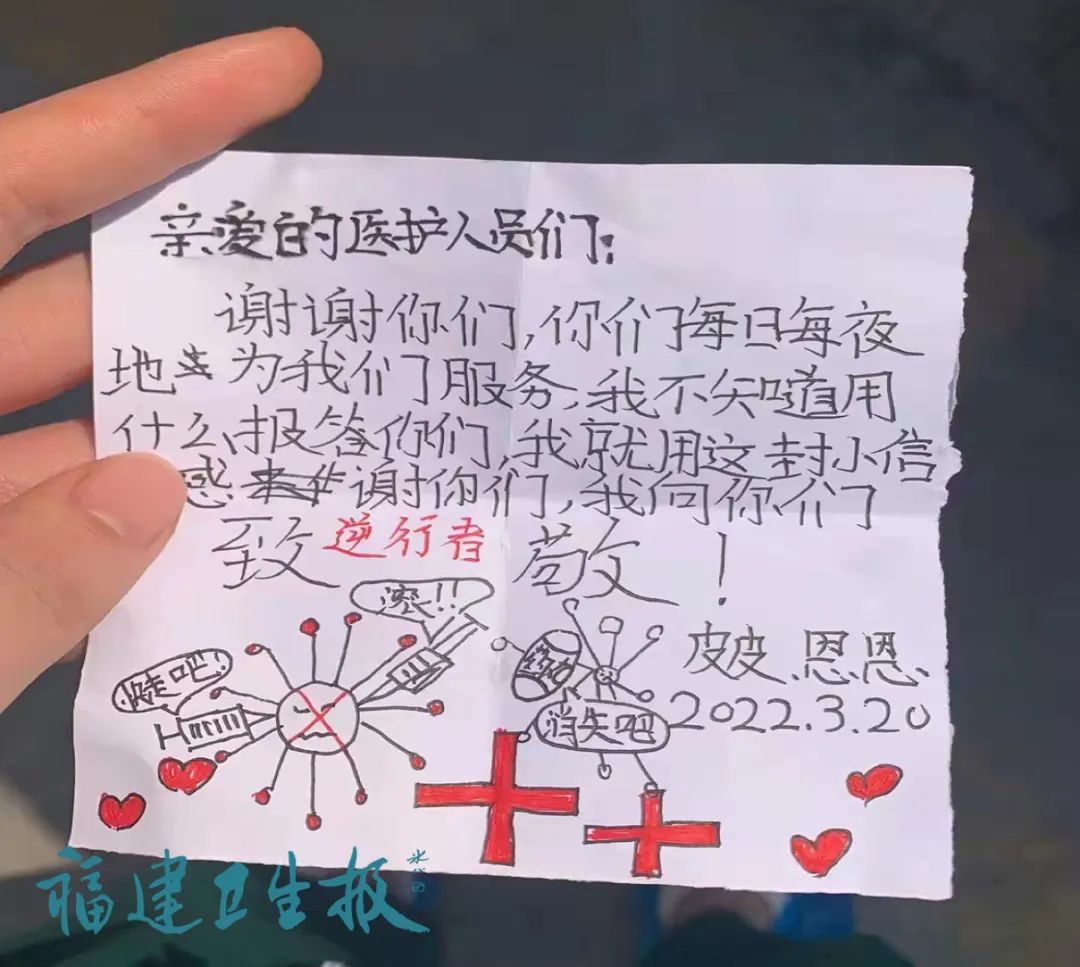 亲爱的医护人员们：
谢谢你们，你们每日每夜
地为我们服务，我不知道用
什么报答你们，我就用这封小信
感谢你们，我向你们
致逆行者敬！
滚!!
走吧!
消失吧
皮皮、恩恩
2022.3.20
福建卫生报